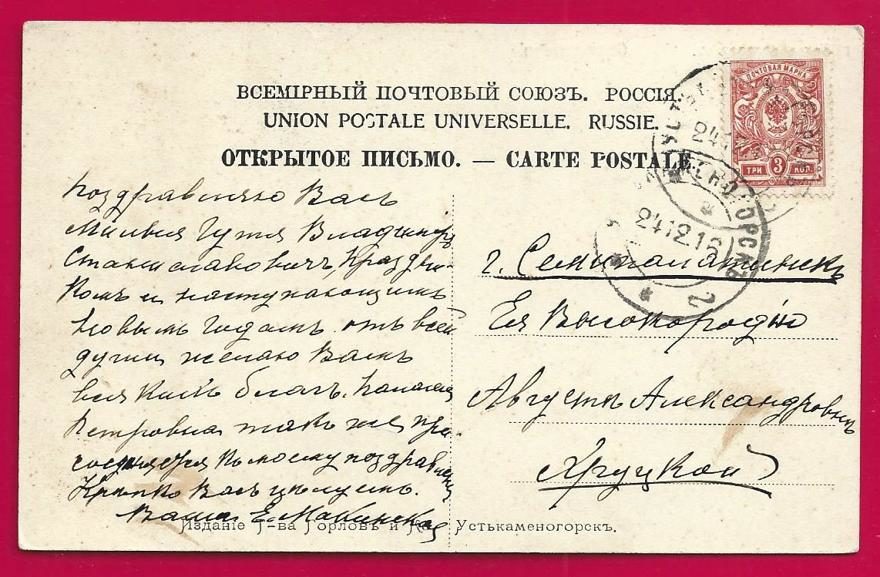 ВСЕМІРНЫЙ ПОЧТОВЫЙ СОЮЗЪ. РОССІЯ
UNION POSTALE UNIVERSELLE. RUSSIE.
ОТКРЫТОЕ ПИСЬМО. — CARTE POSTALE
ПОЧТОВАЯ МАРКА
ТРИ 3 КОП.
24.12.16
2
Поздравляю Васъ
Милыя Гутя Владиміръ
Станиславовичъ Праздни-
комъ и наступающимъ
Новымъ Годомъ. отъ всей
души желаю Вамъ
всякихъ благъ.
Петровна также при-
соединяется къ моему поздравлен
Крепко Васъ целуемъ.
Ваша Е.
г. Семипалатинскъ
Ея Высокородію
Августѣ Александровнѣ
Хруцкой
Изданіе Т-ва Горловъ и Устькаменогорскъ.